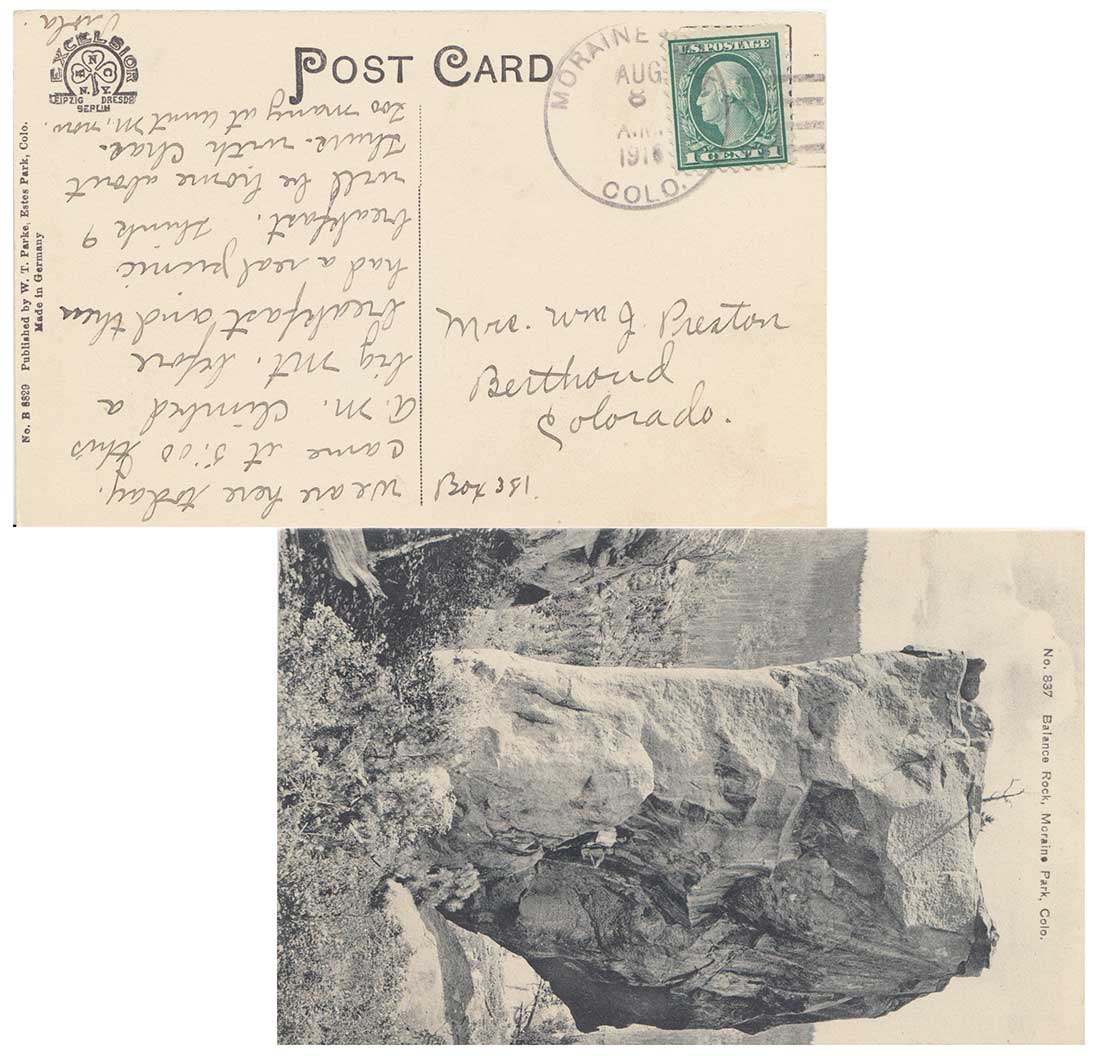 EXCELSIOR
A N C
N.Y.
LEIPZIG DRESDEN
BERLIN
POST CARD
MORAINE
AUG
8
A.M.
1916
COLO.
U.S. POSTAGE
1 CENT 1
No. B 8829 Published by W. T. Parke, Estes Park, Colo.
Made in Germany
we are here today.
came at 5:00 this
a.m. climbed a
big mt. before
breakfast and then
had a real picnic
breakfast. Think I
will be home about
thurs. with Chas.
too many at Aunt M. now.
Viola.
Mrs. Wm J. Preston
Berthoud
Colorado.
Box 351.
No. 837 Balance Rock, Moraine Park, Colo.